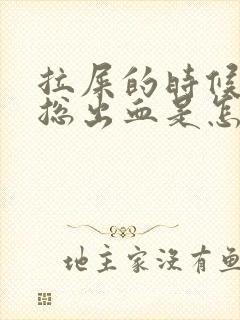 拉屎的时候
总出血是怎
地主家没有鱼